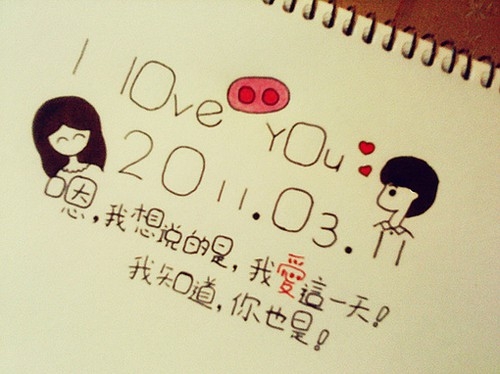 I love you
2011.03.11
嗯，我想说的是，我愛這一天！
我知道，你也是！